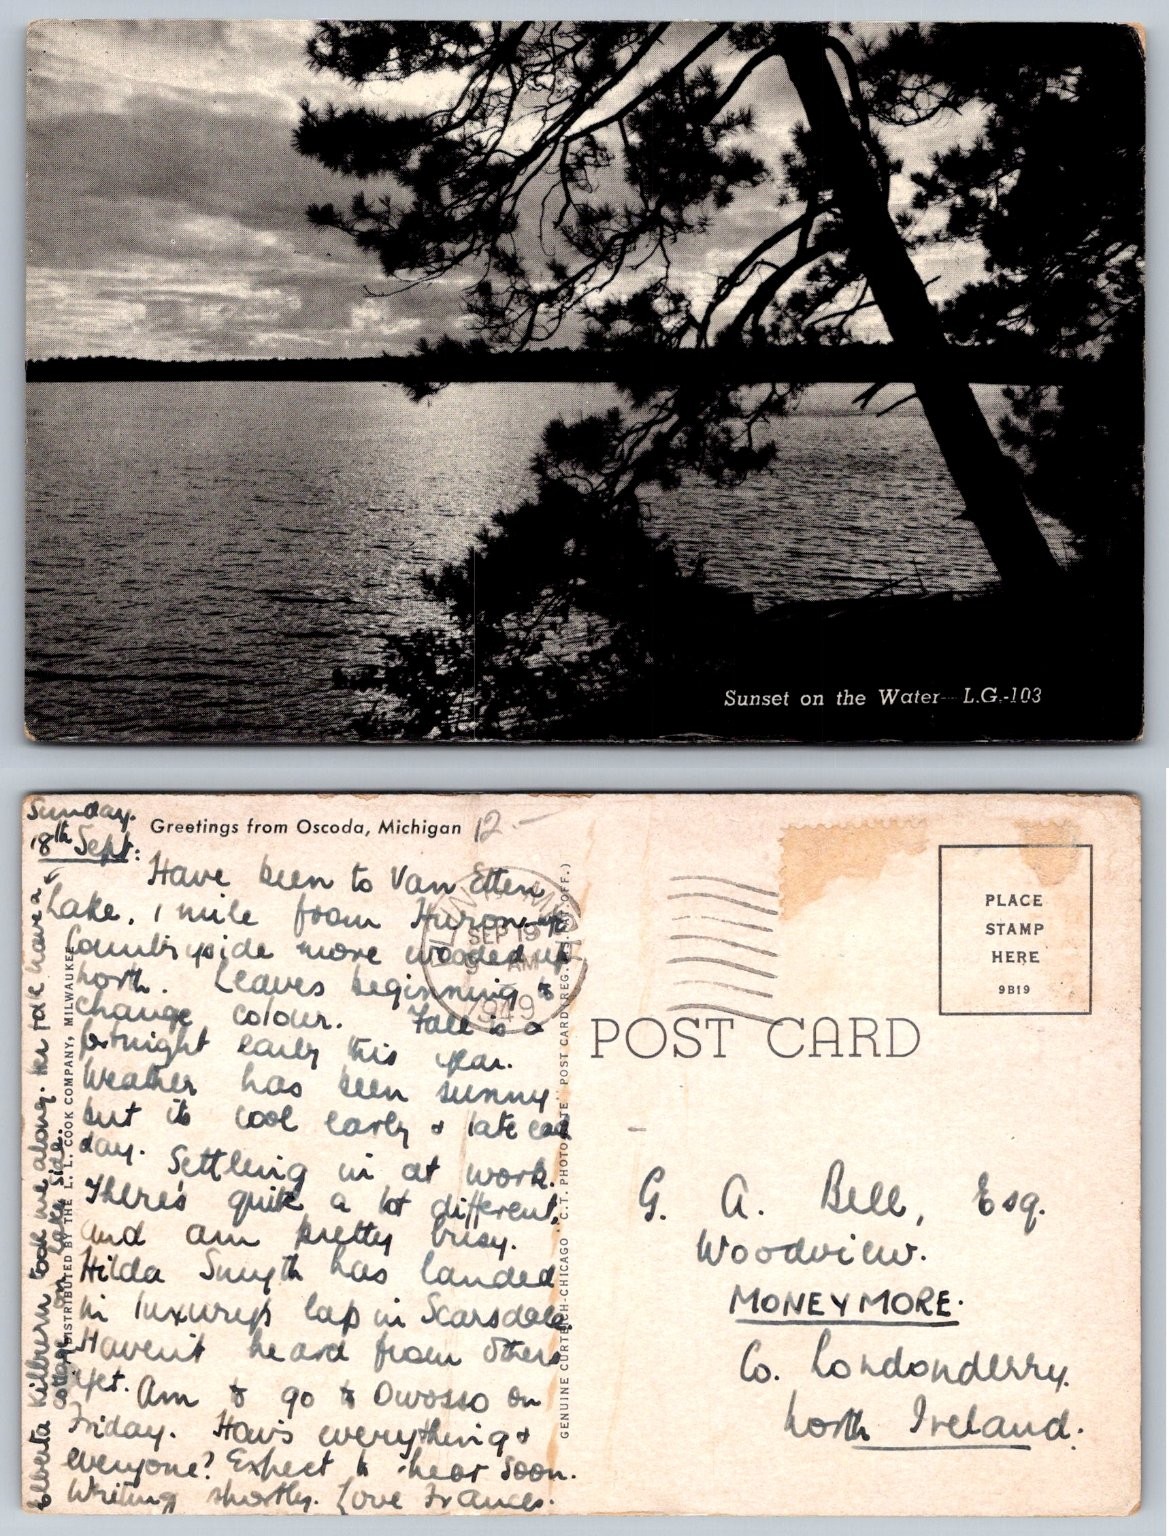 Sunset on the Water L.G.-103
Sunday.
18th Sept:
Greetings from Oscoda, Michigan
12.-
Have been to Van Etten
Lake. 1 mile from Huron
Countryside more wooded up
north. Leaves beginning to
change colour. Fall is a
fortnight early this year.
Weather has been sunny
but its cool early & late each
day. Settling in at work.
There's quite a lot different,
and am pretty busy.
Hilda Smyth has landed
in luxury's lap in Scarsdale.
Haven't heard from others
yet. Am to go to Owosso on
Friday. How's everything &
everyone? Expect to hear soon.
Writing shortly. Love Frances.
Elberta Kilburn took me along. Her folk have a
cottage on lake side.
DISTRIBUTED BY THE L. L. COOK COMPANY, MILWAUKEE
FLINT MICH
SEP 19
AM
1949
GENUINE CURTEICH-CHICAGO "C.T. PHOTO-" POST CARD (REG. U.S. PAT. OFF.)
PLACE
STAMP
HERE
9B19
POST CARD
G. A. Bell, Esq.
Woodview.
MONEYMORE.
Co. Londonderry.
North Ireland.